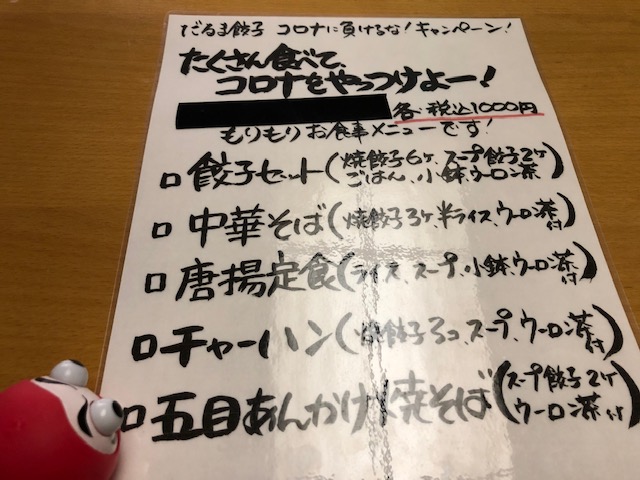 だるま餃子 コロナに負けるな!キャンペーン!
たくさん食べて、
コロナをやっつけよー!
各・税込1000円
もりもりお食事メニューです!
□ 餃子セット(焼餃子6ヶ、スープ餃子2ヶ
ごはん、小鉢、ウーロン茶)
□ 中華そば(焼餃子3ヶ、半ライス、ウーロン茶付)
□ 唐揚定食(ライス、スープ、小鉢、ウーロン茶付)
□ チャーハン(焼餃子3コ、スープ、ウーロン茶付)
□ 五目あんかけ焼そば(スープ餃子2ヶ
ウーロン茶付)